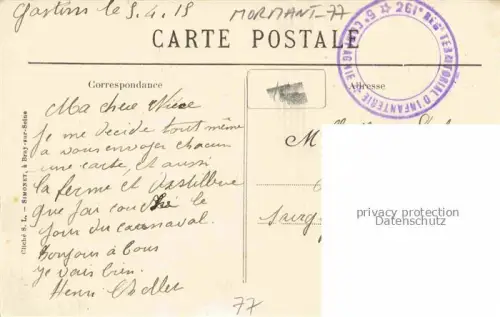 Gastins le 9.4.15
MORMANT-77
CARTE POSTALE
261e REGT TERRITORIAL D'INFANTERIE
5e COMPAGNIE
Correspondance
Adresse
Ma chère Nièce
je me decide tout même
a vous envoyer chacun
une carte, et aussi
la ferme et
que j'ai couché le
jour du carnaval.
Bonjour à tous
je vais bien.
Henri
M
privacy protection
Datenschutz
Cliché S. L. - SIMONET, à Bray-sur-Seine
77